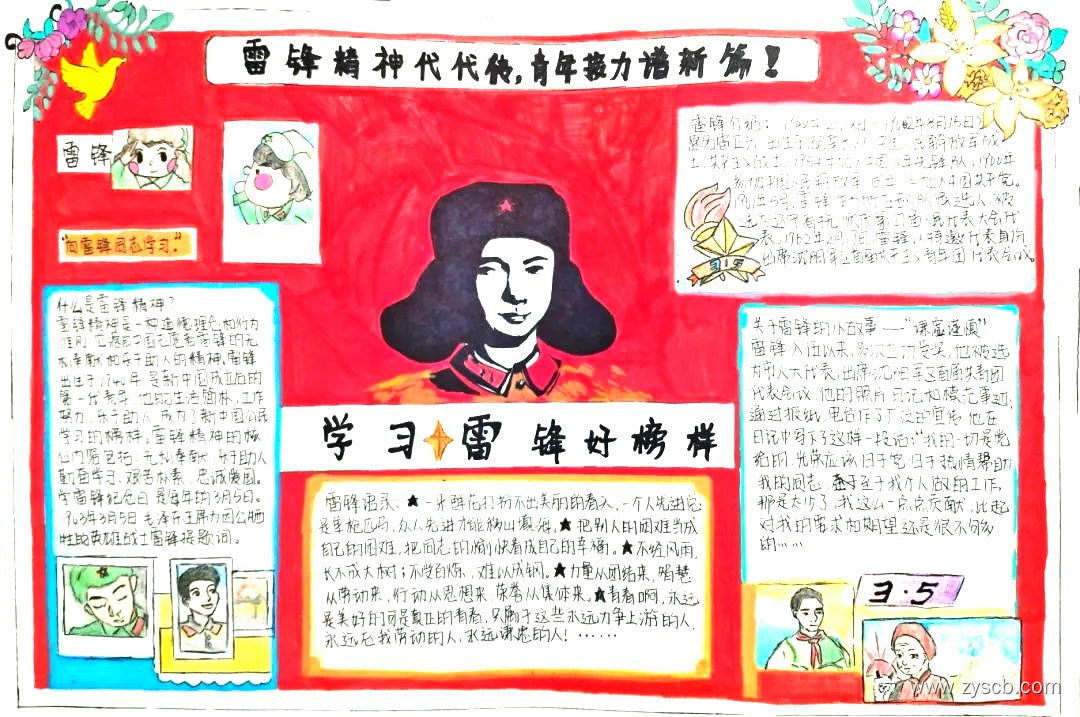 雷锋精神代代传,青年接力谱新篇!
雷锋
"向雷锋同志学习."
什么是雷锋精神?
雷锋精神是一种道德理念和行为
准则,它源自中国志愿者雷锋的无
私奉献和乐于助人的精神,雷锋
出生于1940年,是新中国成立后的
第一代青年,他的生活简朴,工作
努力,乐于助人,成为了新中国公民
学习的榜样。雷锋精神的核
心内涵包括:无私奉献、乐于助人
勤奋学习、艰苦朴素、忠诚爱国。
学雷锋纪念日是每年的3月5日。
1963年3月5日毛泽东主席为因公牺
牲的英雄战士雷锋提题词。
学习雷锋好榜样
雷锋语录:★一朵鲜花打扮不出美丽的春天,一个人先进总
是单枪匹马,众人先进才能移山填海。★把别人的困难当成
自己的困难,把同志的愉快看成自己的幸福。★不经风雨,
长不成大树;不受百炼,难以成钢。★力量从团结来,智慧
从劳动来,行动从思想来,荣誉从集体来。★青春啊,永远
是美好的,可是真正的青春,只属于这些永远力争上游的人,
永远忘我劳动的人,永远谦虚的人!……
雷锋介绍:
士,共产主义战士,
加入中国共产党。
选为
表,1962年2月 雷锋 特邀代表身份
出席沈阳军区首届共产主义青年团代表会议
关于雷锋的小故事——"谦虚谨慎"
雷锋入伍以来,多次立功受奖,他被选
为人大代表,出席沈阳军区首届共青团
代表会议,他的照片、日记和模范事迹,
通过报纸、电台作了广泛的宣传,他在
日记中写下了这样一段话:"我的一切是党
给的,光荣应该归于党,归于热情帮助
我的同志,至于我个人做的工作,
那是太少了,我这么一点点贡献,比起
对我的要求和期望还是很不够
的……
3·5
www.zyscb.com